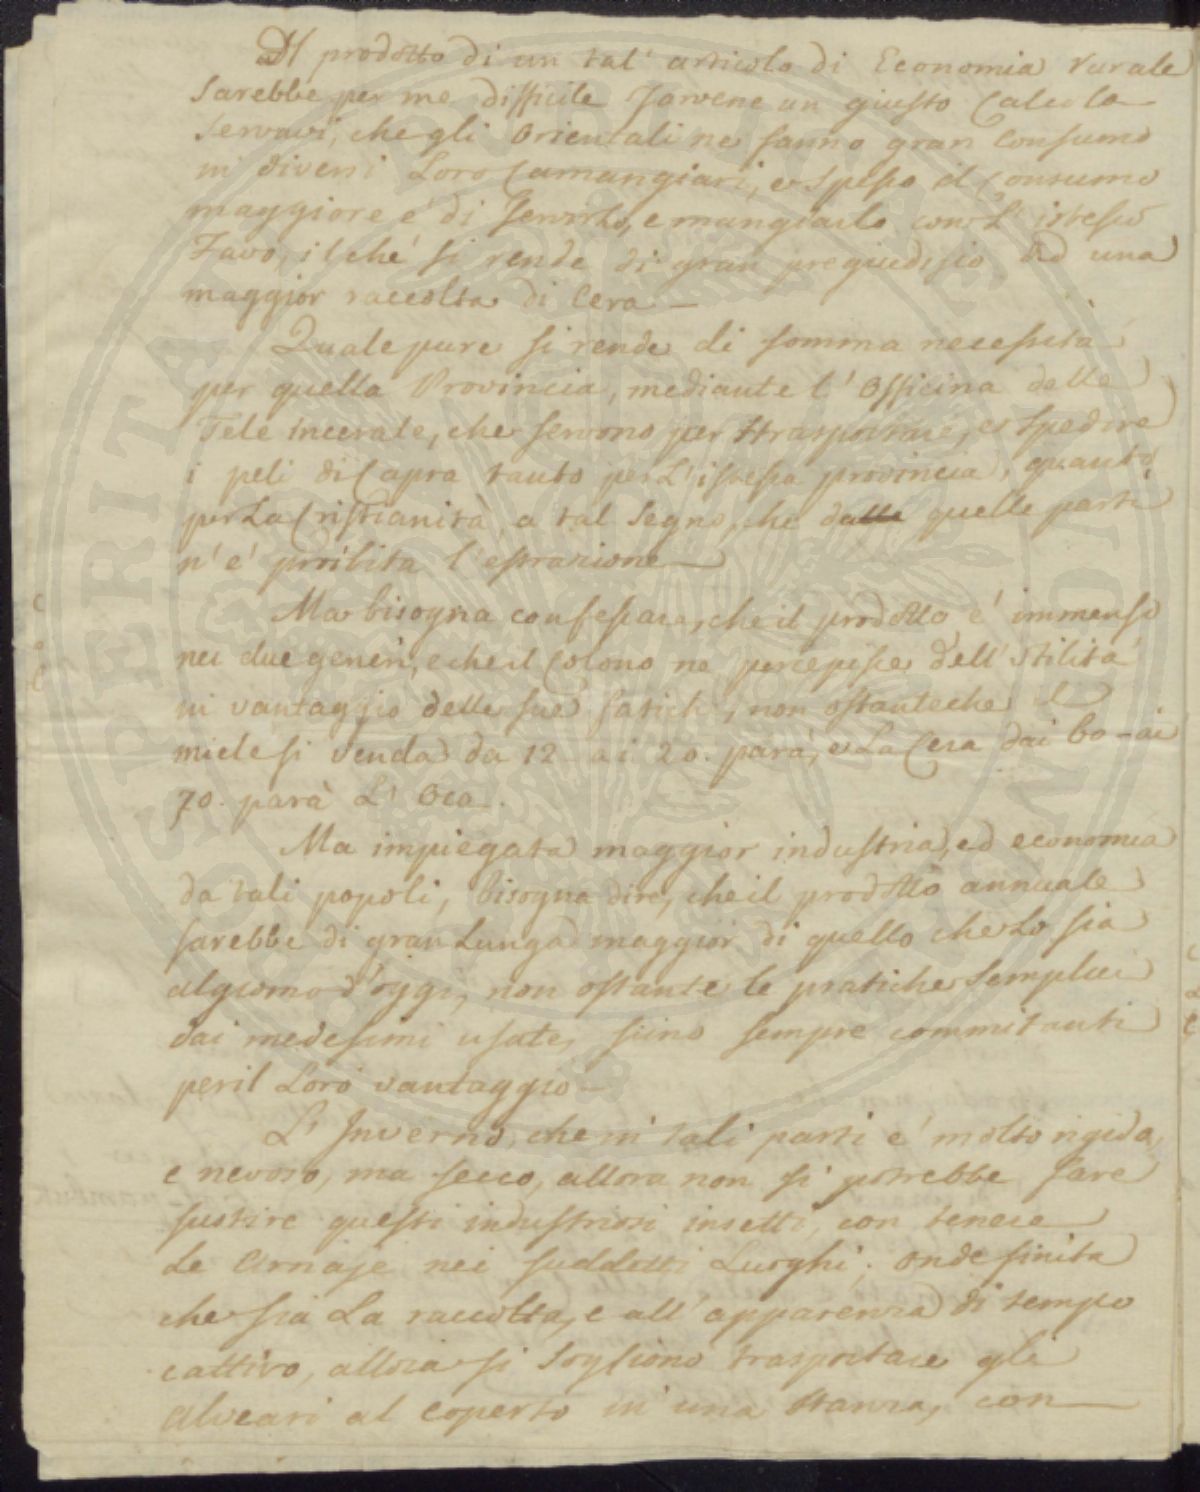 Il prodotto di un tal' articolo di Economia rurale
sarebbe per me difficile farvene un giusto Calcolo
servavi, che gli Orientali ne fanno gran consumo
in diversi Loro Camangiari, e spesso il Consumo
maggiore e' di servirlo, e mangiarlo con L' istesso
Favo, il che' si rende di gran pregiudisio ad una
maggior raccolta di Cera —
Quale pure si rende di somma necessità
per quella Provincia, mediante l' Officina delle
Tele incerate, che servono per trasportare, e spedire
i peli di Capra tanto per L' istessa provincia, quanto
per La Cristianità, a tal segno, che da quelle parti
n' e' proibita l' estrazione —
Ma bisogna confessare, che il prodotto e' immenso
nei due generi, e che il Colono ne percepisce dell' Utilità
in vantaggio delle sue fatiche, non ostanteche il
miele si venda da 12 ai 20. parà, e La Cera dai 60 – ai
70. parà L' Oca.
Ma impiegata maggior industria, ed economia
da tali popoli, bisogna dire, che il prodotto annuale
sarebbe di gran Lunga maggior di quello che Lo sia
al giorno d' oggi, non ostante le pratiche semplici
dai medesimi usate, siino sempre commitanti
per il Loro vantaggio —
L' Inverno, che in tali parti e' molto rigido,
e nevoso, ma secco, allora non si potrebbe fare
sustire questi industriosi insetti, con tenere
Le Arnaje nei suddetti Luoghi; onde finita
che sia La raccolta, e all' apparenza di tempo
cattivo, allora si sogliono trasportare gli
alveari al coperto in una stanza, con —
PROSPERITAS PUBLICA